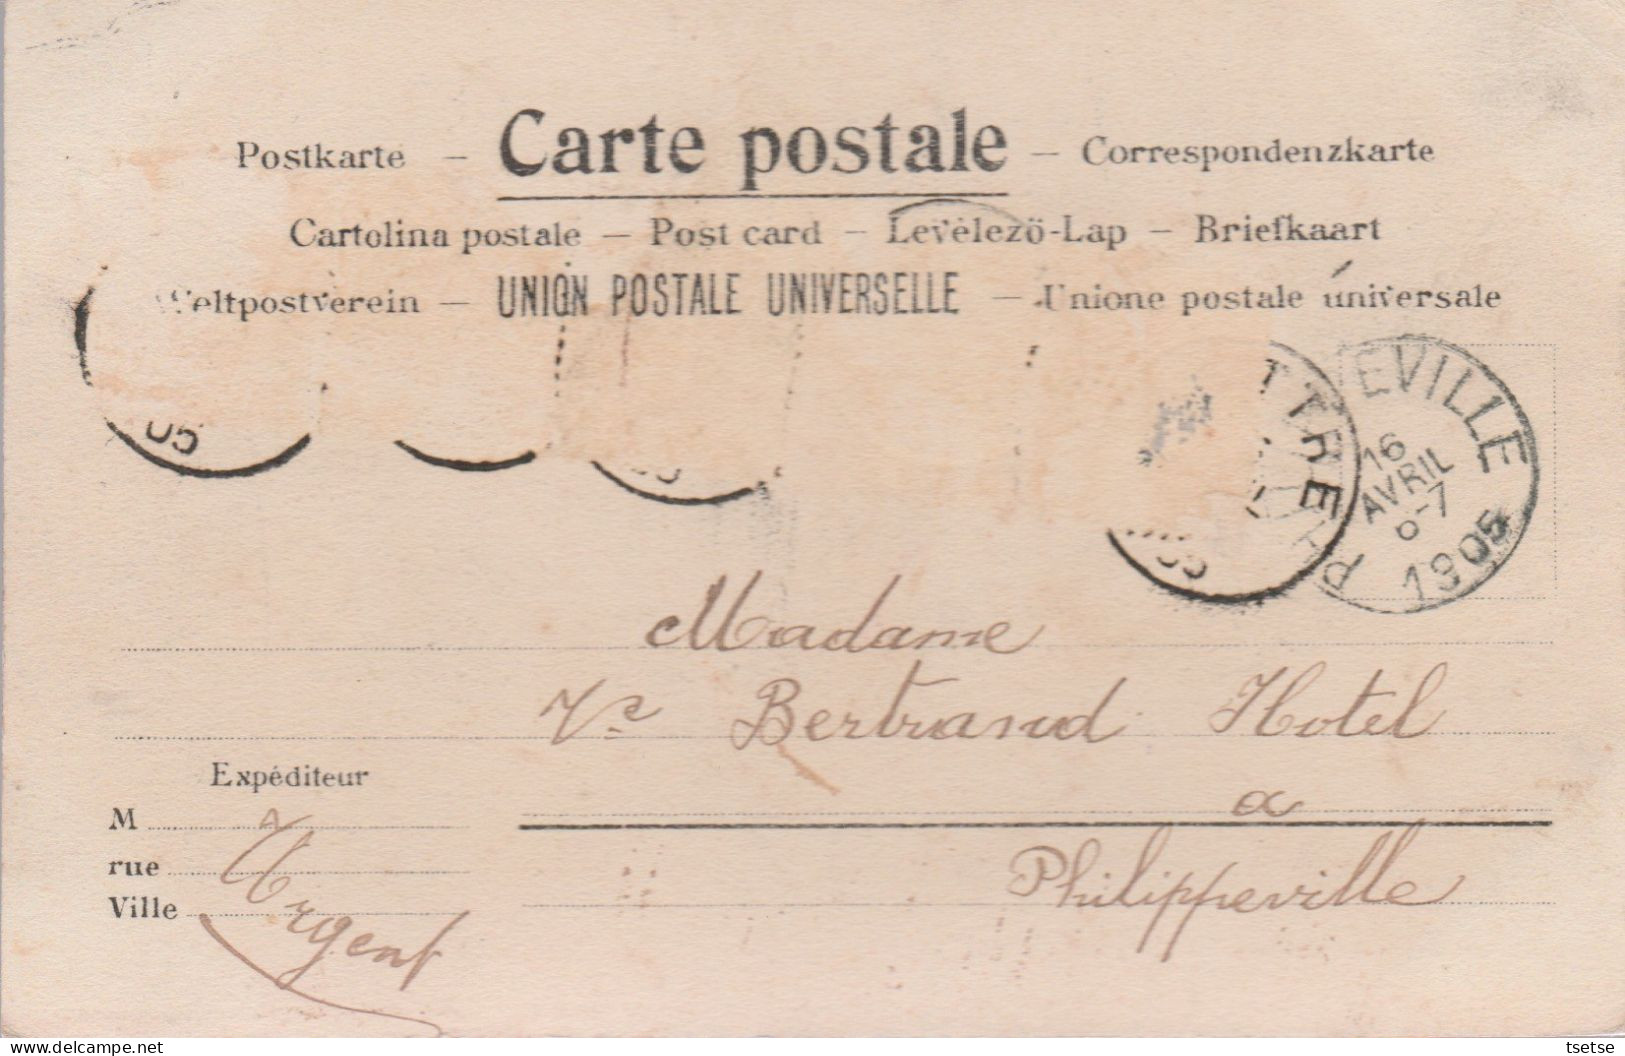 Postkarte – Carte postale – Correspondenzkarte
Cartolina postale – Post card – Levélezö-Lap – Briefkaart
eltpostverein – UNION POSTALE UNIVERSELLE – Unione postale universale
05
TTRE
EVILLE
16
AVRIL
6-7
1905
PHI
Madame
Ve Bertrand Hotel
a
Philippeville
Expéditeur
M
rue
Ville
Urgent
delcampe.net
tsetse